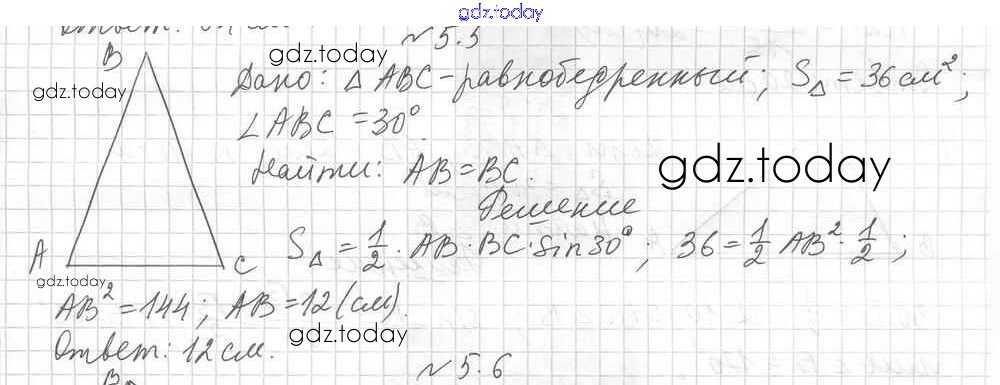 gdz.today
№ 5.5
B
gdz.today
Дано: △ ABC - равнобедренный; S△ = 36 см²;
gdz.today
∠ABC = 30°.
Найти: AB = BC.
gdz.today
Решение
S△ = 1/2 · AB · BC · sin30°; 36 = 1/2 AB² · 1/2;
A
C
gdz.today
AB² = 144; AB = 12 (см).
gdz.today
Ответ: 12 см.
№ 5.6